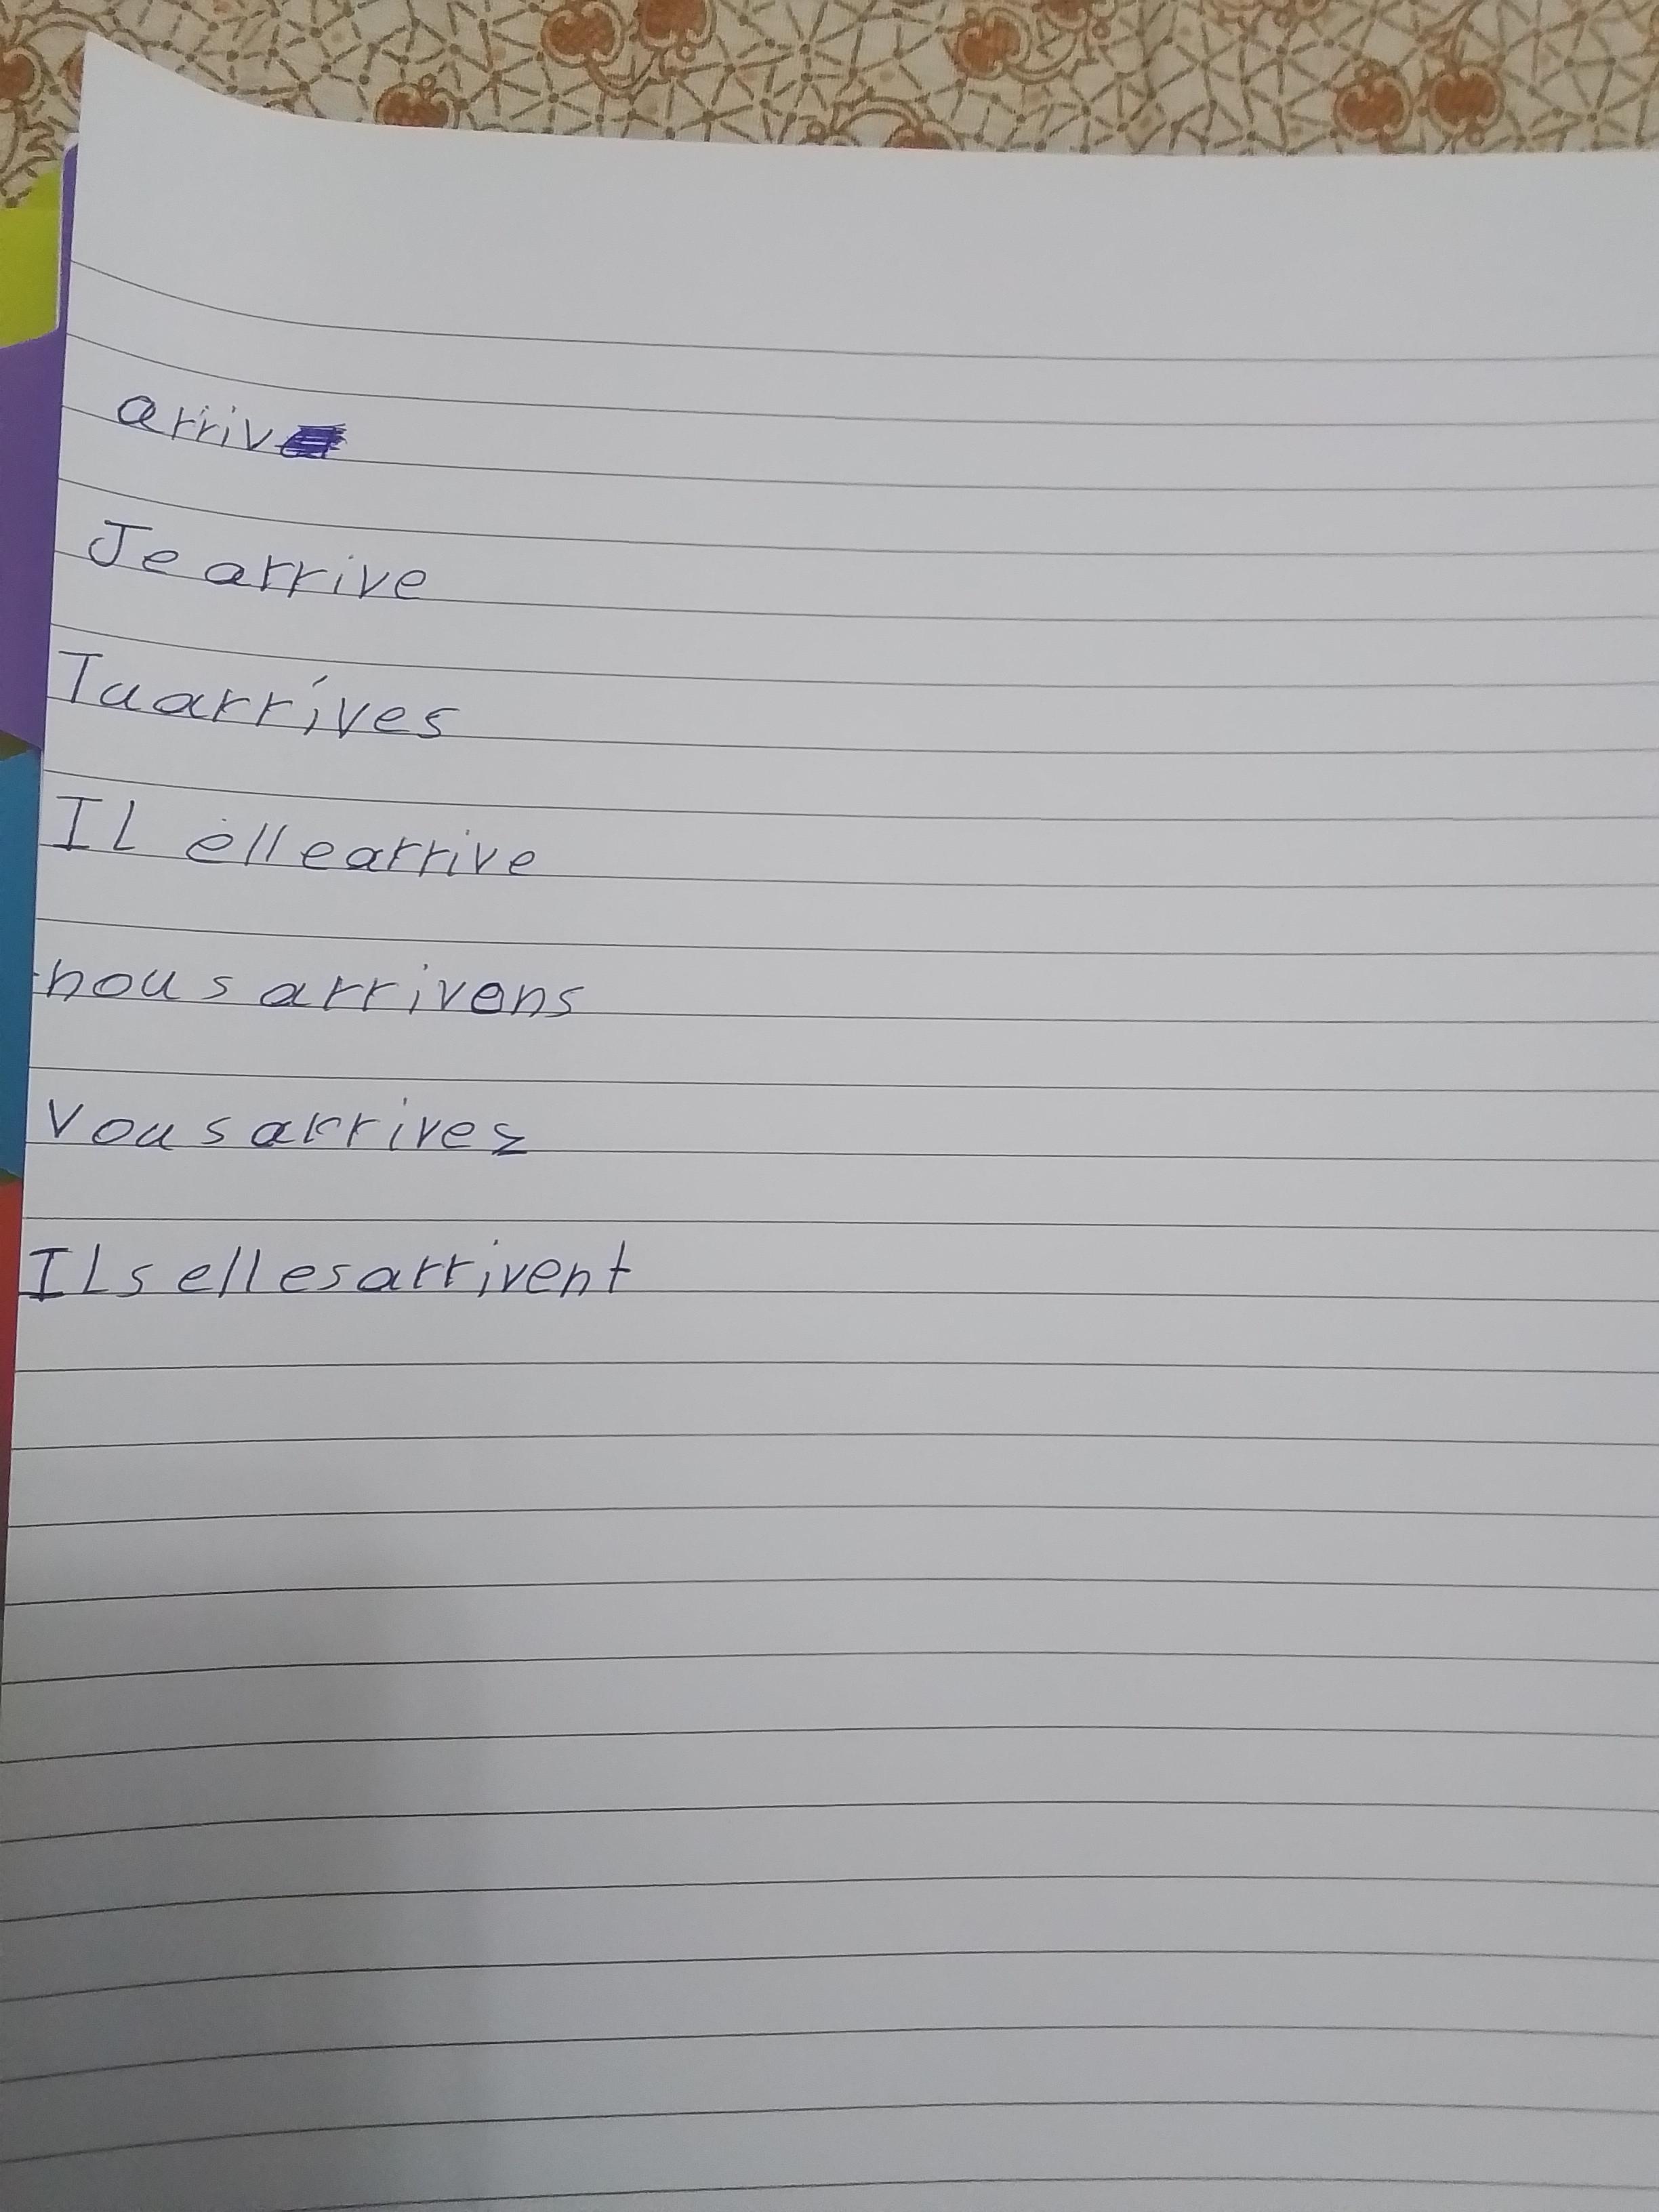 arriv
Je arrive
Tu arrives
IL elle arrive
nous arrivons
Vous arrivez
ILs elles arrivent